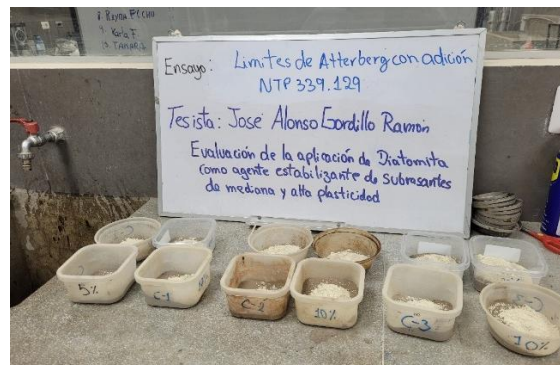 Reyna
Karla F.
TAMARA
Ensayo: Limites de Atterberg con adición
NTP 339.129
Tesista: José Alonso Gordillo Ramón
Evaluación de la aplicación de Diatomita
como agente estabilizante de subrasantes
de mediana y alta plasticidad
5%
C-1
C-2
10%
C-3
10%